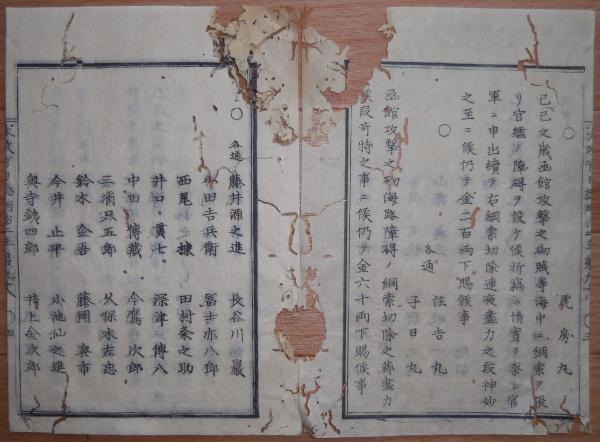 虎房丸
己巳之歳函館攻撃之砌賊等海中ニ綱索ヲ張
リ官艦ノ障碍ヲ設ケ候折竊ニ情實ヲ察シ官
軍ニ申出續テ右綱索切除連夜盡力之段神妙
之至ニ候仍テ金二百両下賜候事
○
各通
住吉丸
子日丸
函館攻撃之砌海路障碍ノ綱索切除之節盡力
候段奇特之事ニ候仍テ金六十両下賜候事
○
各通
藤井源之進 長谷川 巖
田吉兵衛 冨士亦八郎
西尾 棟 田村条之助
井口 貫七 深津傳八
中田傳藏 今鷹次郎
三浦只五郎 久保木左忠
鈴木金吾 藤岡奥市
今井止平 小池仙之進
奥寺錢四郎 井上金次郎